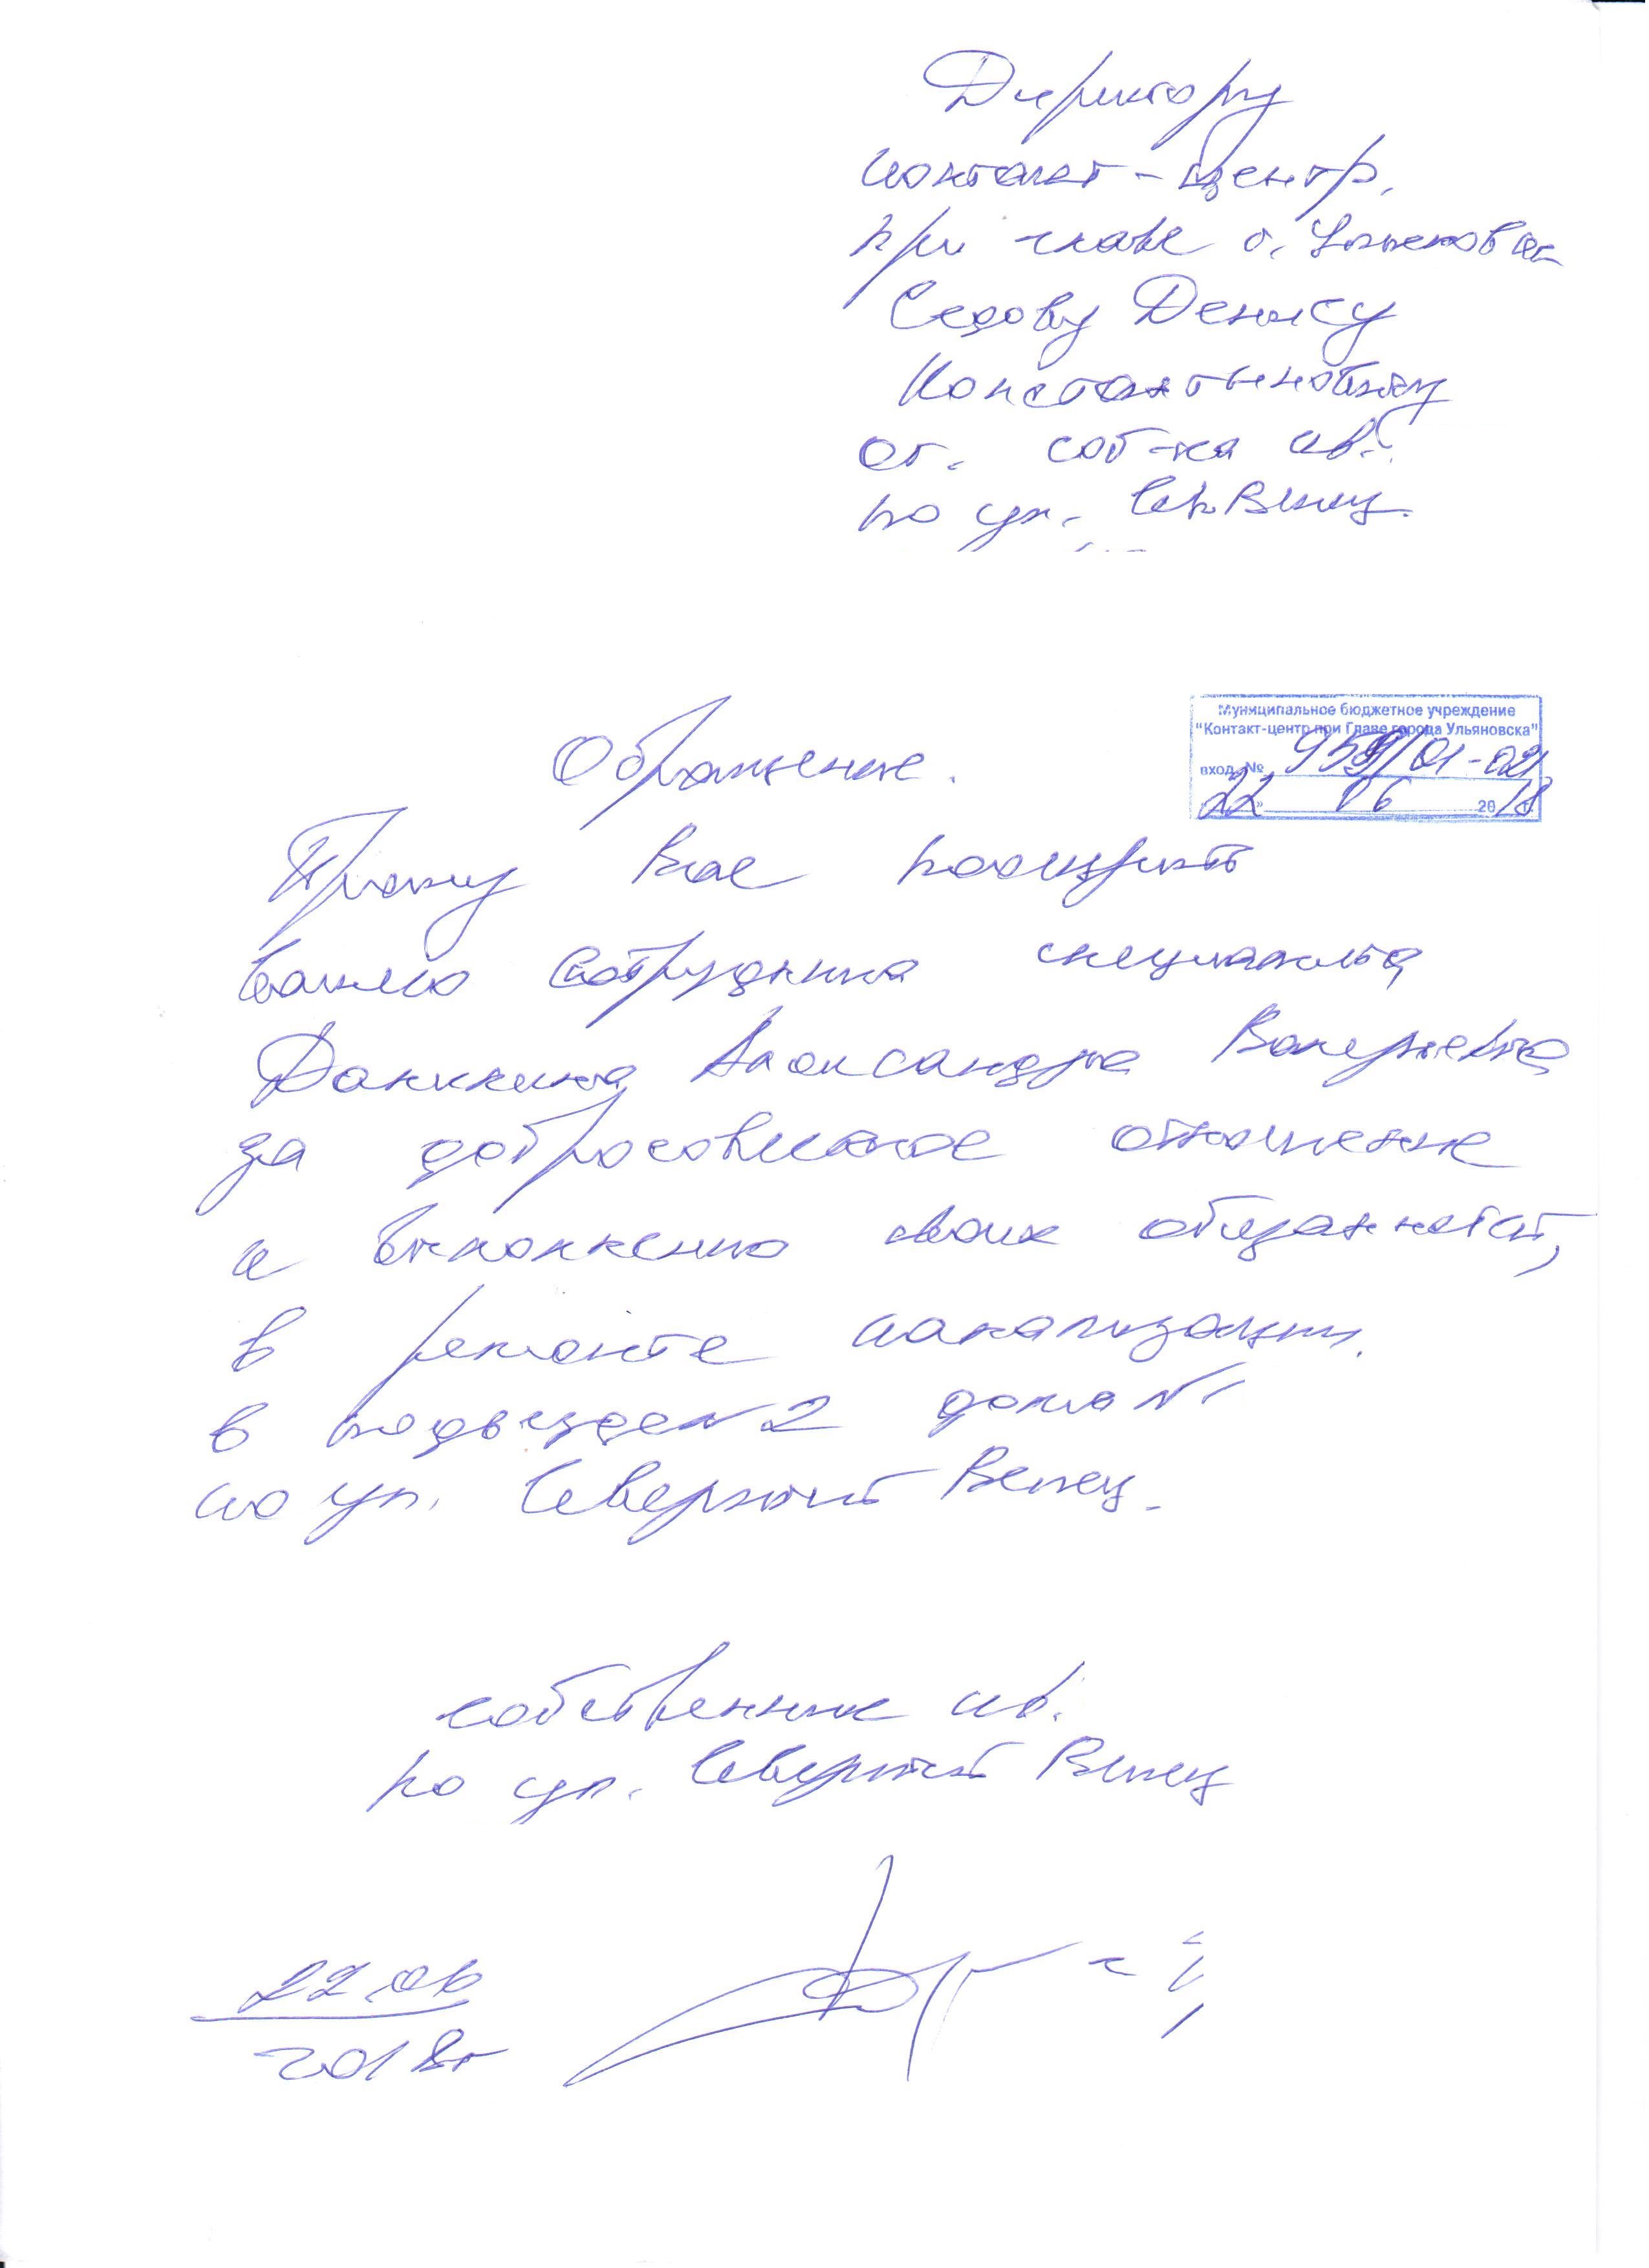 Директору
контакт-центр,
при главе г. Ульяновска
Седову Денису
Константиновичу
от. соб-ка кв.
по ул. Сев. Венец.
Муниципальное бюджетное учреждение
"Контакт-центр при Главе города Ульяновска"
вход. № 959/01-02
22 06 2018
Обращение.
Прошу Вас поощрить
вашего сотрудника специалиста
Александра Валерьевича
за добросовестное отношение
к выполнению своих обязанностей,
в ремонте канализации.
в подъезде № 2 дома №
по ул. Северный Венец.
собственник кв.
по ул. Северный Венец
22.06
2018г